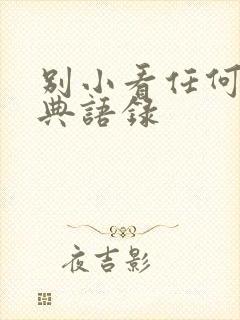 別小看任何
典語錄
夜吉影